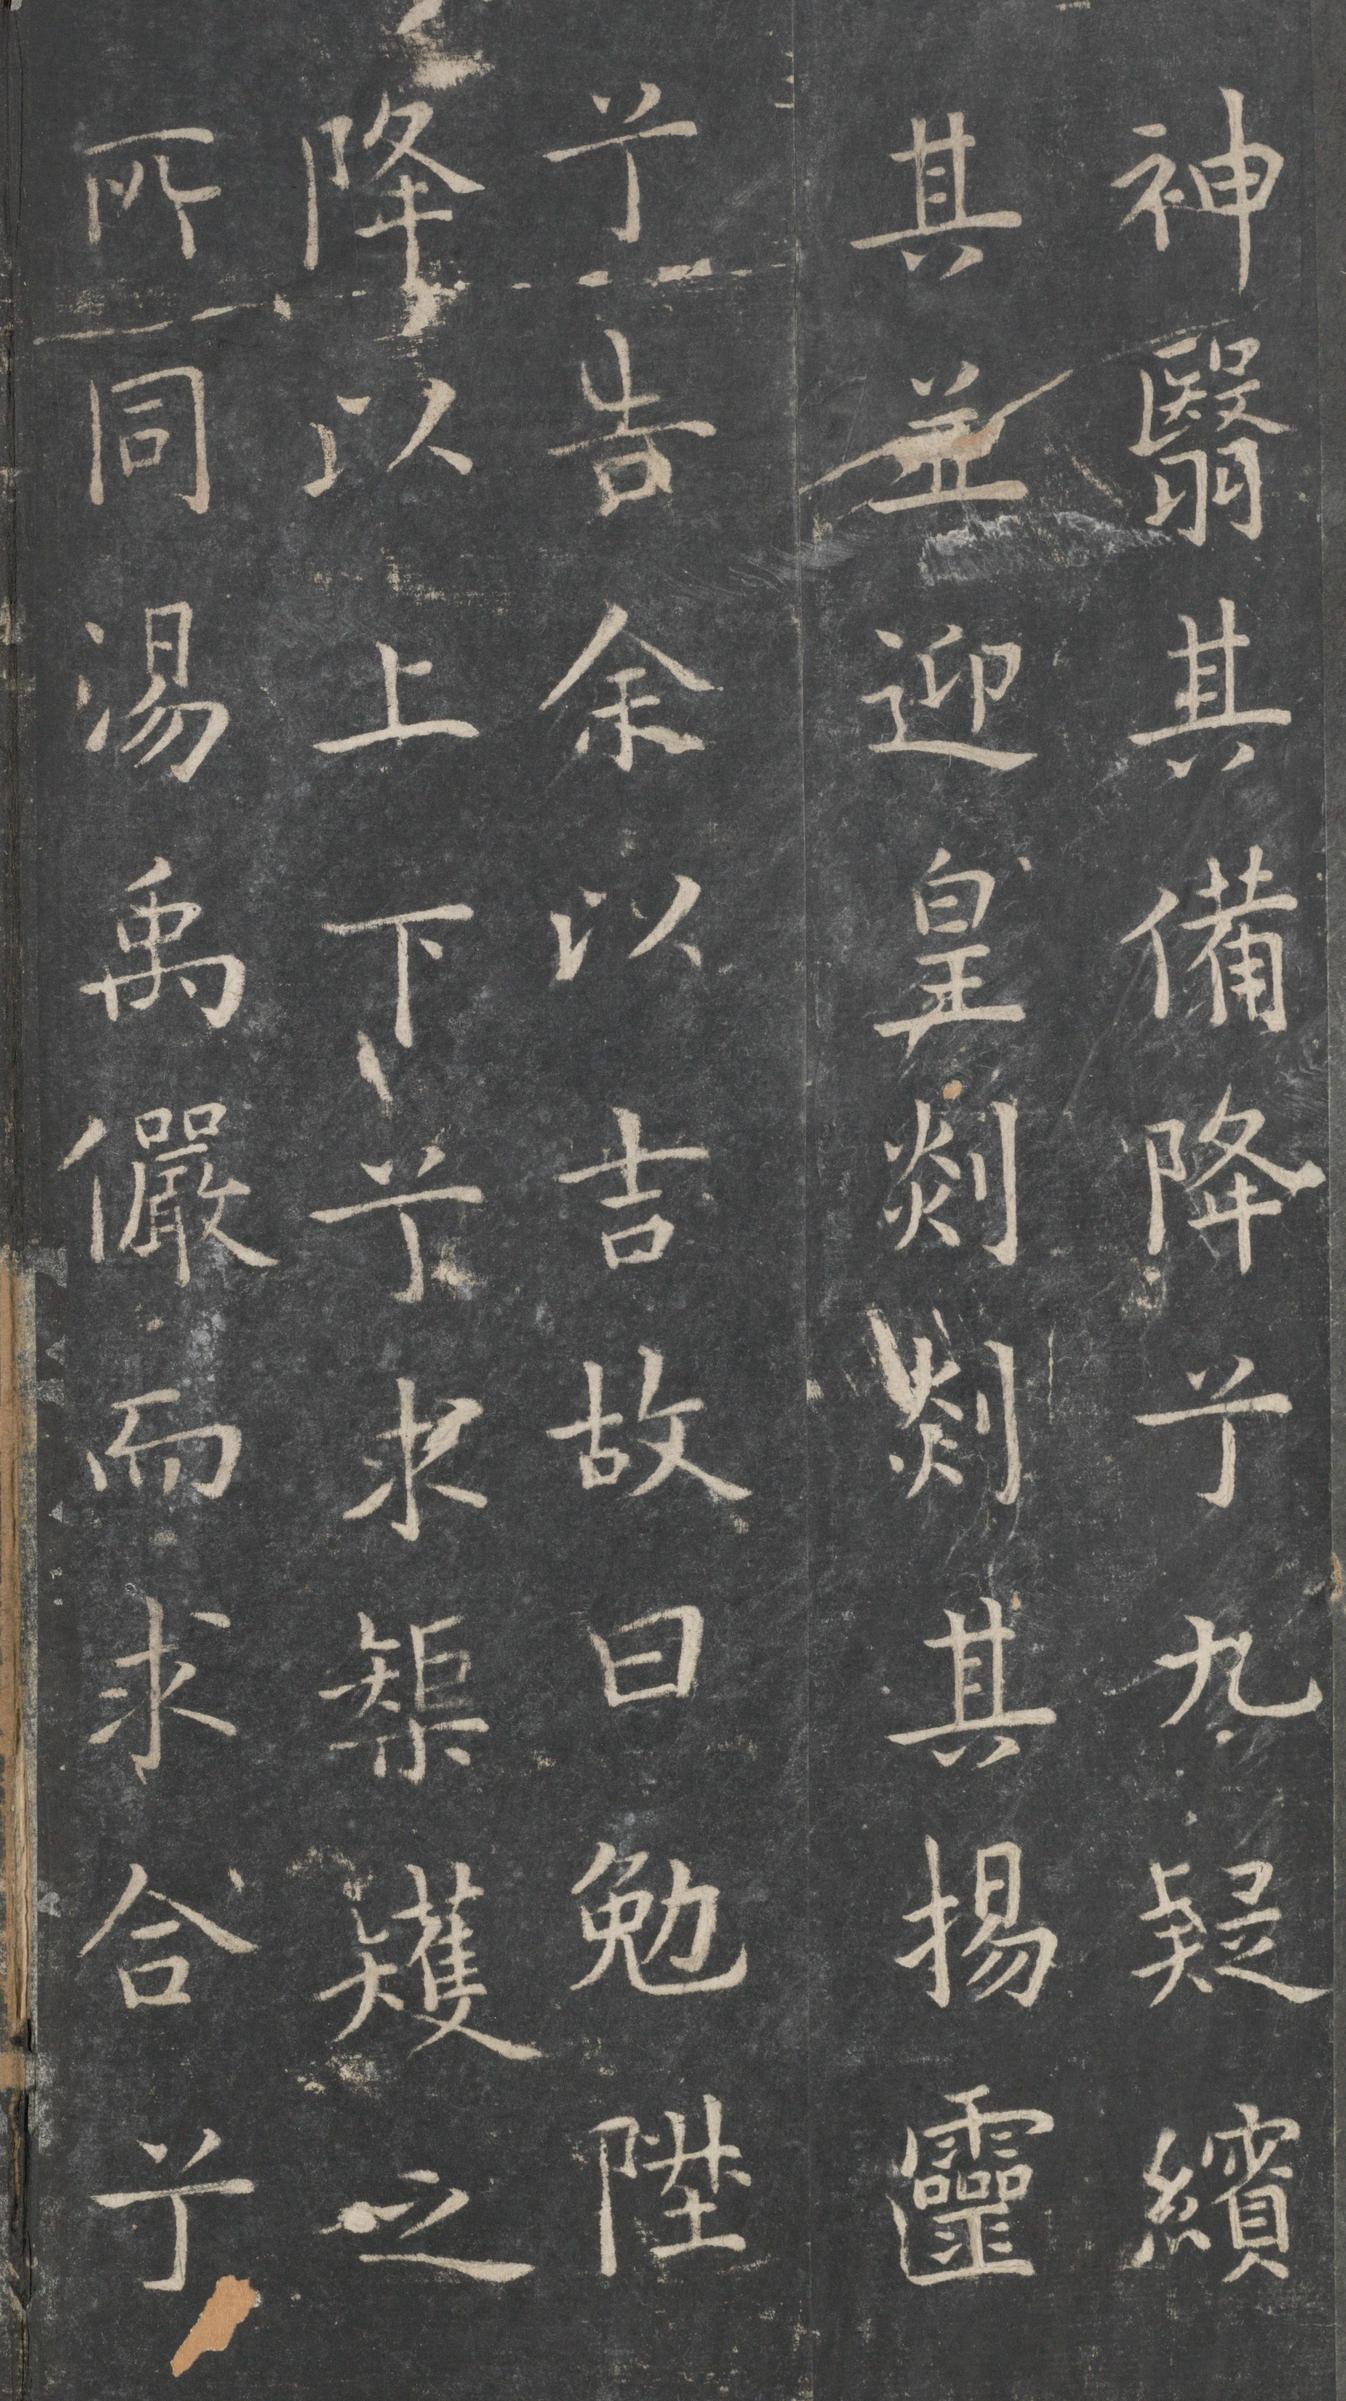 神翳其備降兮九疑繽
其並迎皇剡剡其揚靈
兮告余以吉故曰勉陞
降以上下兮求榘矱之
所同湯禹儼而求合兮